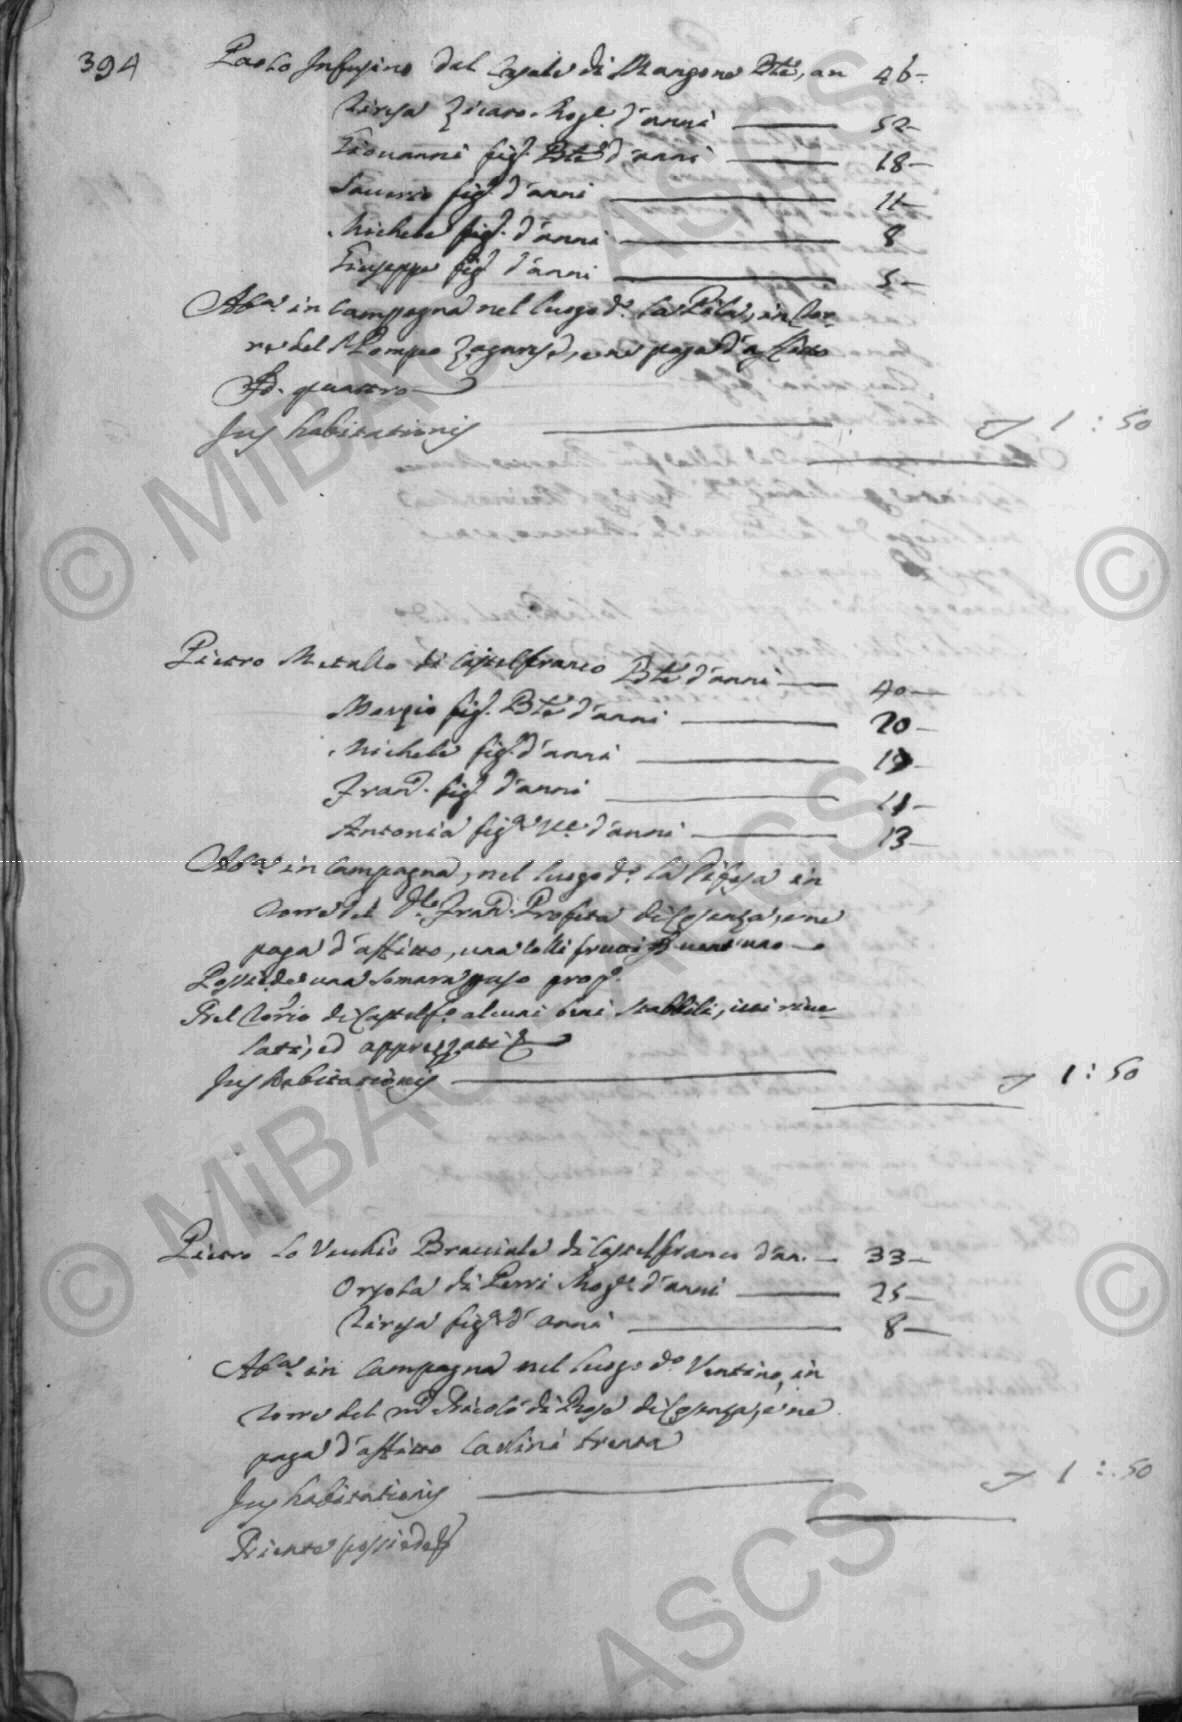 394
Paolo Infusino del Casale di Mangone Btle, an 46
Teresa Zicaro Mogl. d'anni 52
Giovanni figl. Btle d'anni 18
Saverio figl. d'anni 11
Michele figl. d'anni 8
Giuseppe figl. d'anni 5
Abta in Campagna nel luogo do. la Pila, in Tor-
re del Sr Pompeo Zagarese, e ne paga d'affitto
quattro
Jus habitationis 1 : 50
Pietro Metallo di Castelfranco Btle d'anni 40
Marzio figl. Btle d'anni 20
Michele figl. d'anni 19
Franco. figl. d'anni
Antonia figa. Vre. d'anni 13
Abta. in Campagna, nel luogo do. la Difesa in
torre del Franco. Profeta di Cosenza, e ne
paga d'affitto, una colli frutti
Possiede una Somara p uso propo.
Nel Torrio di Castelfo. alcuni beni stabbili, ivi rive-
lati, ed apprezzati
Jus habitationis 1 : 50
Pietro lo Vecchio Bracciale di Castelfranco d'an. 33
Orsola di Perri Mogle. d'anni 25
Teresa figa. d'anni 8
Abta. in Campagna nel luogo do. Ventino, in
torre del Nicolò di Rose di Cosenza, e ne
paga d'affitto Carlini trenta
Jus habitationis 1 : 50
Niente possiede
© MiBAC - ASCS ©
© MiBAC - ASCS ©
ASCS